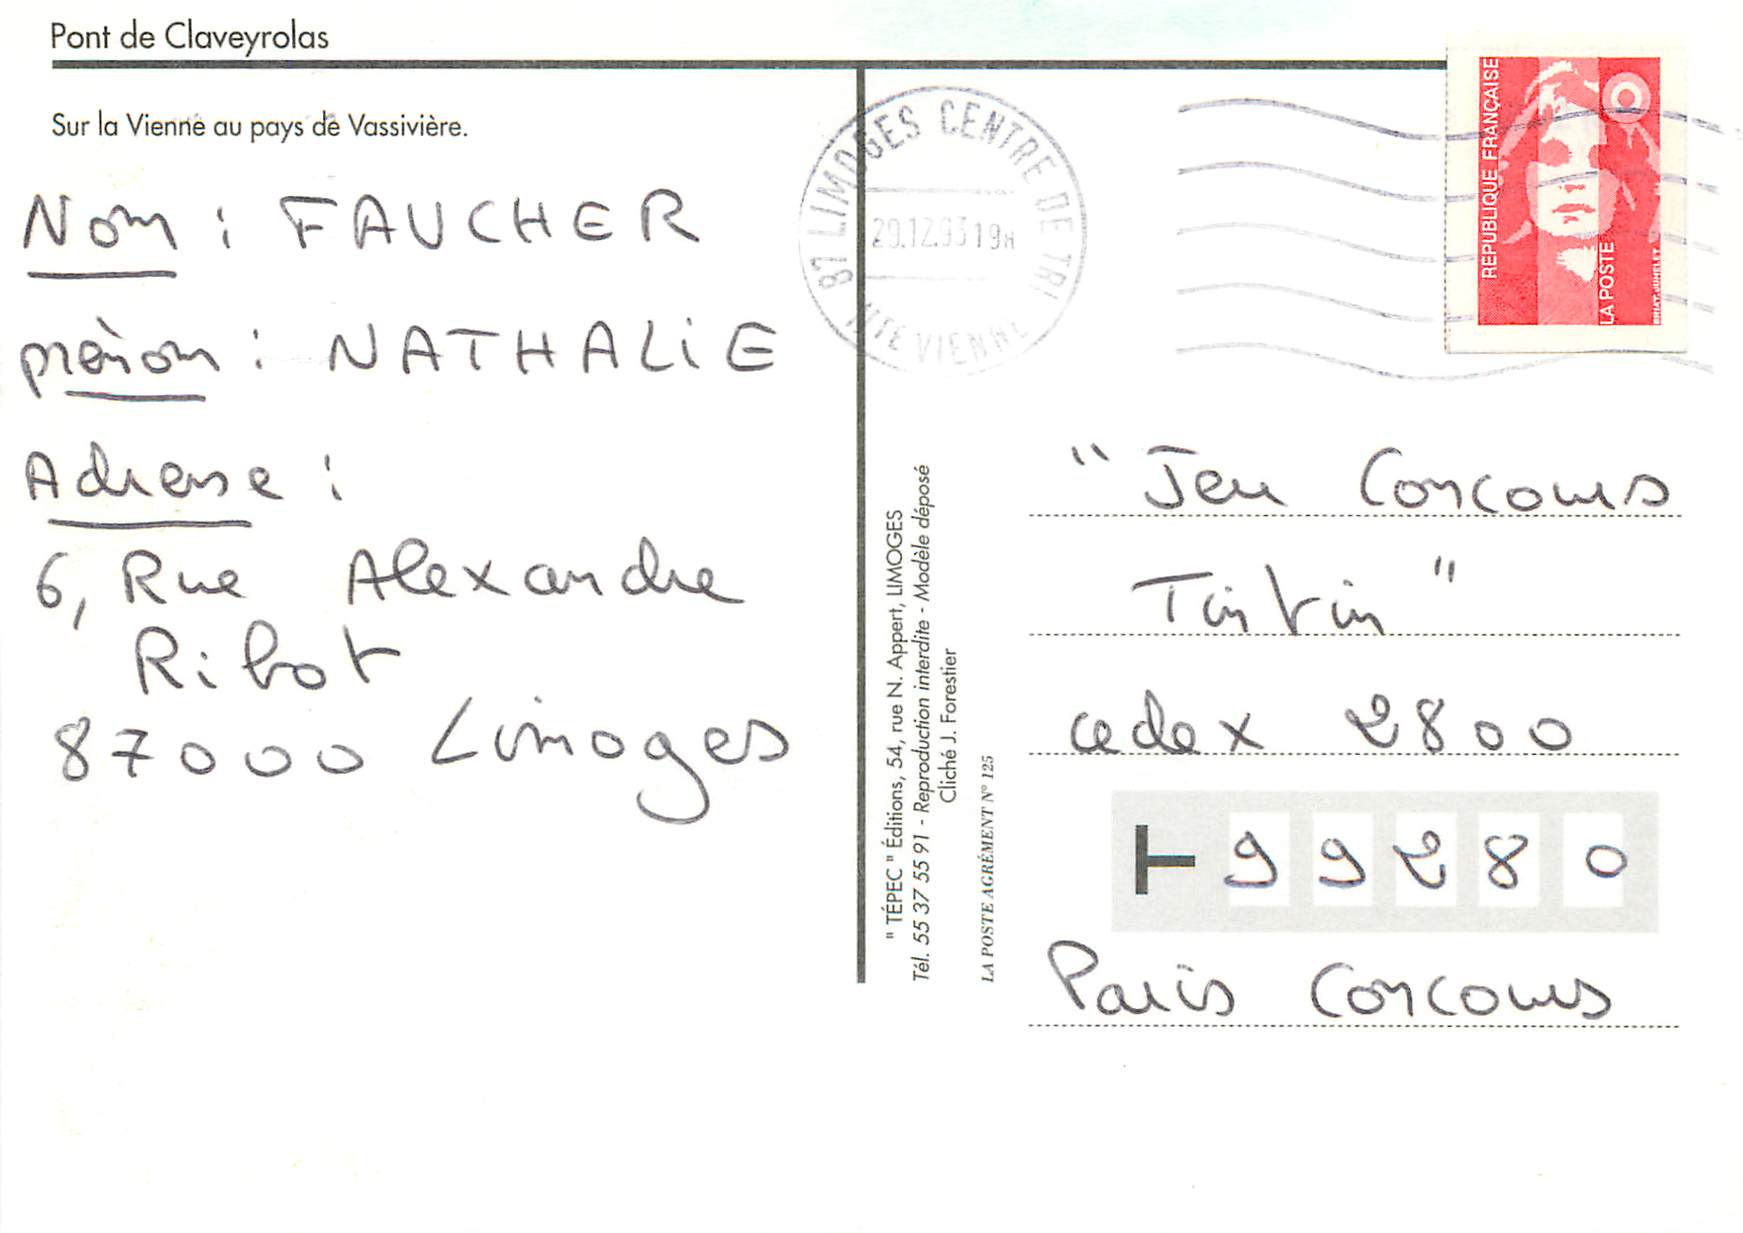 Pont de Claveyrolas
Sur la Vienne au pays de Vassivière.
Nom : FAUCHER
prénom : NATHALiE
Adresse :
6, Rue Alexandre
Ribot
87000 Limoges
87 LIMOGES CENTRE DE TRI
29.12.93 19H
HTE VIENNE
RÉPUBLIQUE FRANÇAISE
LA POSTE
BRIAT.JUMELET
" TÉPEC " Éditions, 54, rue N. Appert, LIMOGES
Tél. 55 37 55 91 - Reproduction interdite - Modèle déposé
Cliché J. Forestier
LA POSTE AGRÉMENT N° 125
" Jeu Concours
Tintin "
cedex 2800
99280
Paris Concours